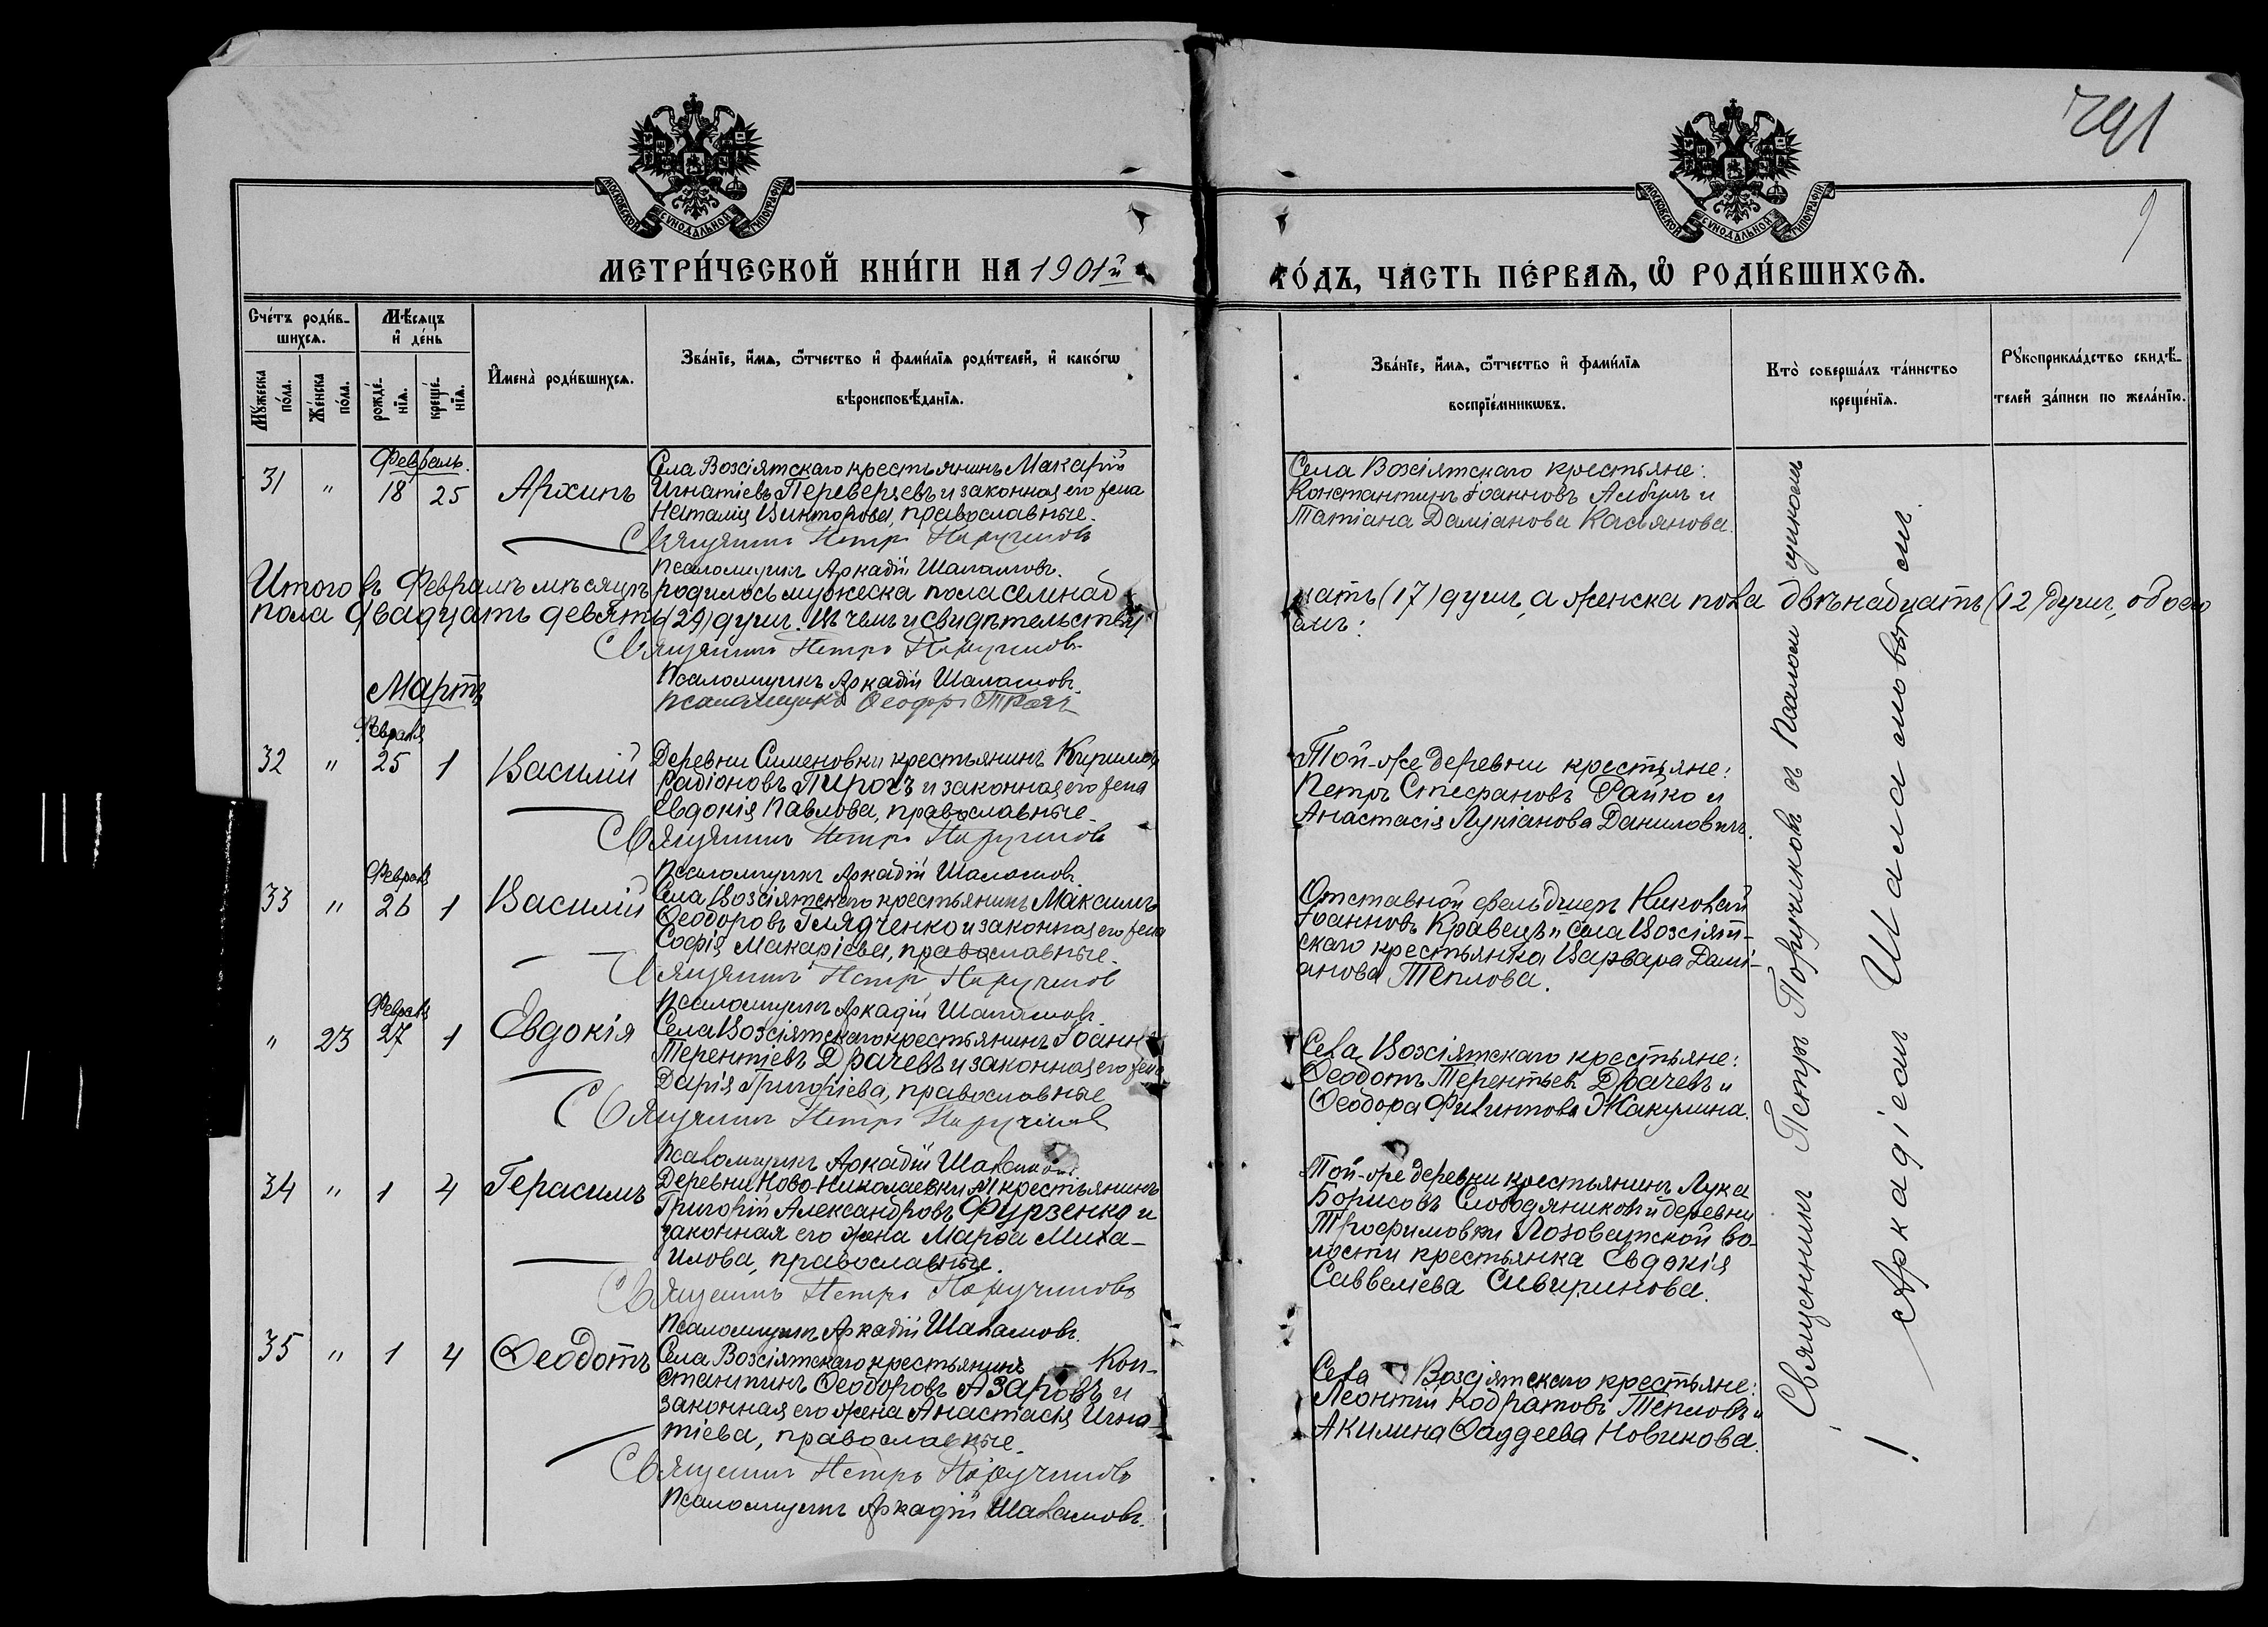 291
9
МОСКОВСКОЙ СѴНОДАЛЬНОЙ ТИПОГРАФІИ
МОСКОВСКОЙ СѴНОДАЛЬНОЙ ТИПОГРАФІИ
МЕТРИ́ЧЕСКОЙ КНИ́ГИ НА 1901й
ГО́ДЪ, ЧА́СТЬ ПЕ́РВАѦ, Ѡ҆ РОДИ́ВШИХСѦ.
Сче́тъ роди́в-
шихсѧ.
Мꙋ́жеска по́ла.
Же́нска по́ла.
Мѣ́сѧцъ
и҆ де́нь
рожде́-
нїѧ.
креще́-
нїѧ.
И҆мена̀ роди́вшихсѧ.
Зва́нїе, и҆́мѧ, ѻ҆́тчество и҆ фами́лїѧ роди́телей, и҆ како́гѡ
вѣроисповѣ́данїѧ.
Зва́нїе, и҆́мѧ, ѻ҆́тчество и҆ фами́лїѧ
воспрїе́мникѡвъ.
Кто̀ соверша́лъ та́инство
креще́нїѧ.
Рꙋкоприкла́дство свидѣ́-
телей за́писи по жела́нїю.
Февраль.
31 " 18 25 Архипъ
Села Возсіятскаго крестьянинъ Макарій
Игнатіевъ Переверзевъ и законная его жена
Наталія Викторова, православные.
Священникъ Петръ Поручиковъ
Псаломщикъ Аркадій Шаламовъ.
Села Возсіятскаго крестьяне:
Константинъ Іоанновъ Албулъ и
Татіана Даміанова Касьянова.
Итого въ Февралѣ мѣсяцѣ родилось мужеска пола семнад
цать (17) душъ, а женска пола двѣнадцать (12) душъ, обоего
пола двадцать девять (29) душъ. Въ чемъ и свидѣтельству
емъ:
Священникъ Петръ Поручиковъ
Псаломщикъ Аркадій Шаламовъ.
Псаломщикъ Ѳеофр
Мартъ
Февраля
32 " 25 1 Василій
Деревни Сименовки крестьянинъ Кириллъ
Радіоновъ Пирогъ и законная его жена
Евдокія Павлова, православные.
Священникъ Петръ Поручиковъ
Псаломщикъ Аркадій Шаламовъ.
Той-же деревни крестьяне:
Петръ Стефановъ Райко и
Анастасія Лукіанова Даниловичъ.
Февраля
33 " 26 1 Василій
Села Возсіятскаго крестьянинъ Максимъ
Ѳеодоровъ Глядченко и законная его жена
Софія Макаріева, православные.
Священникъ Петръ Поручиковъ
Псаломщикъ Аркадій Шаламовъ
Отставной фельдшеръ Николай
Іоанновъ Кравецъ и села Возсіят-
скаго крестьянка Варвара Дамі-
анова Теплова.
Февраля
" 23 27 1 Евдокія
Села Возсіятскаго крестьянинъ Іоаннъ
Терентіевъ Драчевъ и законная его жена
Дарія Григоріева, православные
Священникъ Петръ Поручиковъ
Псаломщикъ Аркадій Шаламовъ.
Села Возсіятскаго крестьяне:
Ѳеодотъ Терентьевъ Драчевъ и
Ѳеодора Филиппова Жакулина.
34 " 1 4 Герасимъ
Деревни Ново-Николаевки крестьянинъ
Григорій Александровъ Фурзенко и
законная его жена Марѳа Миха-
илова, православные.
Священникъ Петръ Поручиковъ
Псаломщикъ Аркадій Шаламовъ.
Той-же деревни крестьянинъ Лука
Борисовъ Слободяниковъ и деревни
Трофимовки Лозоватской во-
лости крестьянка Евдокія
Савveліева Сивиринова.
35 " 1 4 Ѳеодотъ
Села Возсіятскаго крестьянинъ Кон-
стантинъ Ѳеодоровъ Азаровъ и
законная его жена Анастасія Игна-
тіева, православные.
Священникъ Петръ Поручиковъ
Псаломщикъ Аркадій Шаламовъ.
Села Возсіятскаго крестьяне:
Леонтій Кодратовъ Тепловъ и
Акилина Ѳаддеева Новикова.
Священникъ Петръ Поручиковъ съ Псаломщикомъ
Аркадіемъ Шаламовымъ.